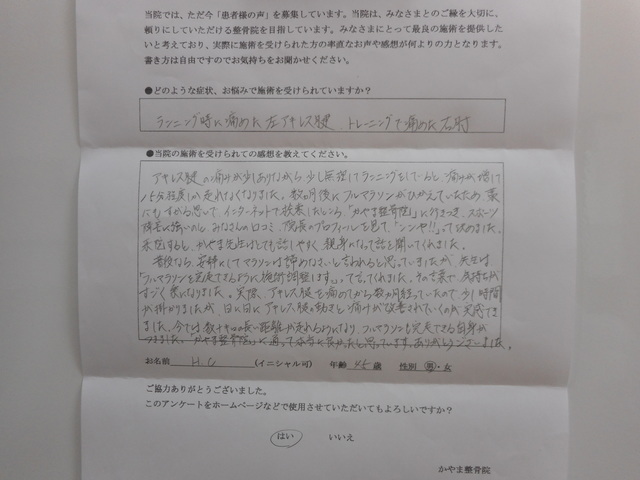 当院では、ただ今「患者様の声」を募集しています。当院は、みなさまとのご縁を大切に、
頼りにしていただける整骨院を目指しています。みなさまにとって最良の施術を提供した
いと考えており、実際に施術を受けられた方の率直なお声や感想が何よりの力となります。
書き方は自由ですのでお気持ちをお聞かせください。
●どのような症状、お悩みで施術を受けられていますか？
ランニング時に痛めた左アキレス腱、トレーニングで痛めた右肘
●当院の施術を受けられての感想を教えてください。
アキレス腱の痛みが少しありながら、少し無理してランニングをしていると、痛みが増して
15分程度しか走れなくなりました。数ヵ月後にフルマラソンがひかえていたため、藁
にもすがる思いで、インターネットで検索したところ、「かやま整骨院」に行きつき、スポーツ
障害に強いのと、みなさんの口コミ、院長のプロフィールを見て、「ココや!!」って決めました。
来院すると、かやま先生はとても話しやすく、親身になって話を聞いてくれました。
普段なら、安静にしてマラソンは諦めなさいと言われると思っていましたが、先生は
「フルマラソンを完走できるように施術調整します。」って言ってくれました。その言葉で気持ちが
すごく楽になりました。実際、アキレス腱を痛めてから数ヵ月経っていたので、少し時間
が掛かりましたが、日に日にアキレス腱の動きと痛みが改善されていくのが実感でき
ました。今では数十キロの長い距離が走れるようになり、フルマラソンも完走できる自身が
つきました。「かやま整骨院」に通って本当に良かったと思っています。ありがとうございました。
お名前 H.C (イニシャル可) 年齢 45 歳 性別 男・女
ご協力ありがとうございました。
このアンケートをホームページなどで使用させていただいてもよろしいですか？
はい いいえ
かやま整骨院